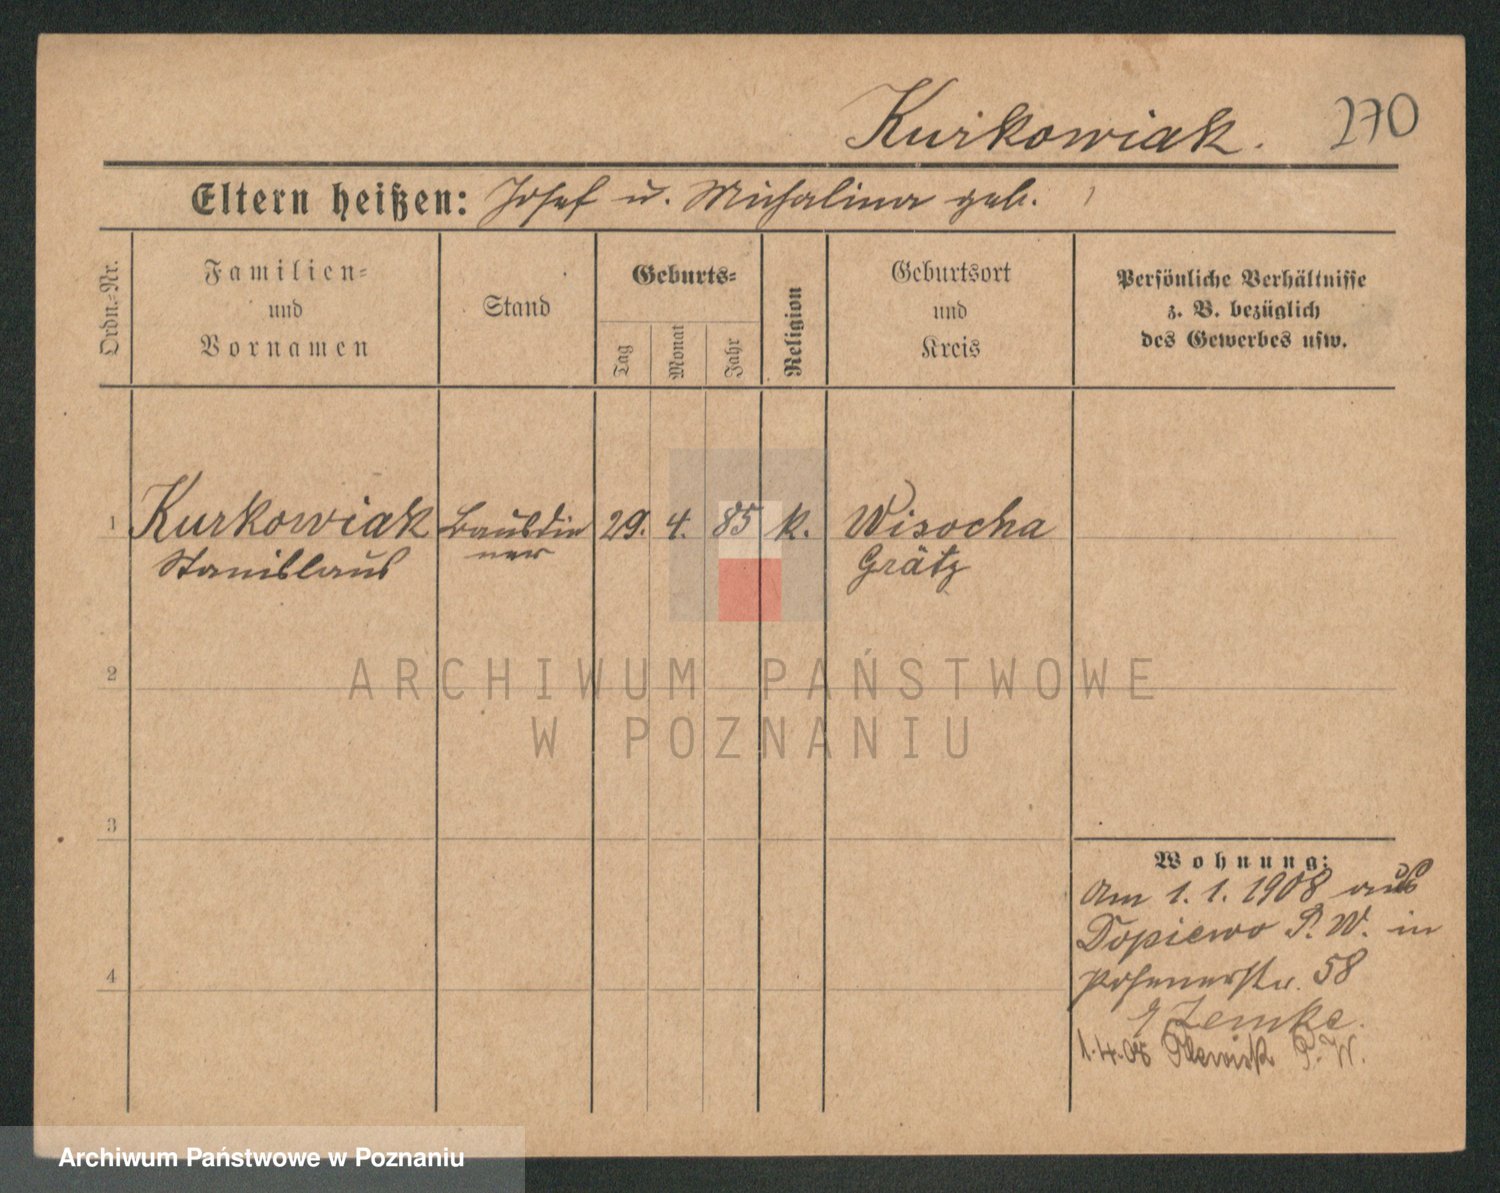 Kurkowiak. 270
Eltern heißen: Josef u. Michalina geb.
Ordn.-Nr.
Familien-
und
Vornamen
Stand
Geburts-
Tag
Monat
Jahr
Religion
Geburtsort
und
Kreis
Persönliche Verhältnisse
z. B. bezüglich
des Gewerbes usw.
1 Kurkowiak 29. 4. 85 k. Wisocha
Stanislaus Grätz
2
ARCHIWUM PAŃSTWOWE
W POZNANIU
3
Wohnung:
Am 1. 1. 1908 aus
Dopiewo P. W. in
Posenerstr. 58
4
Zemke.
1.4.08 P. W.
Archiwum Państwowe w Poznaniu